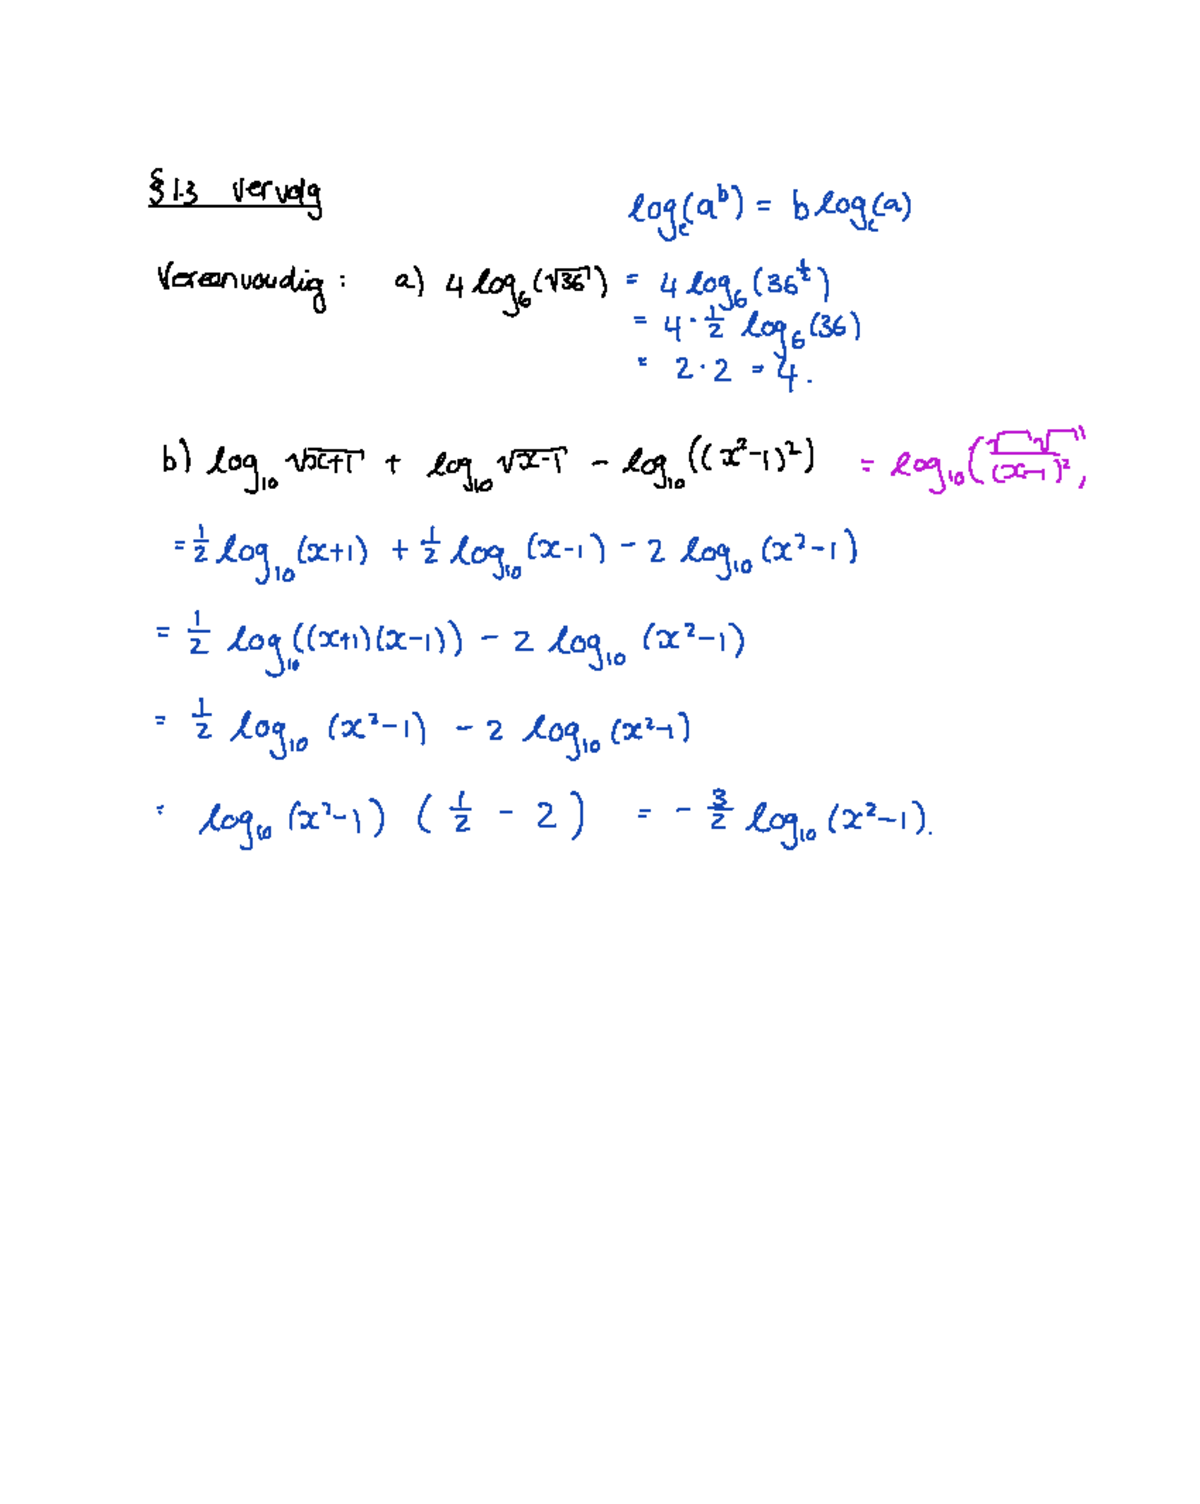 § 1.3 Vervolg
log_c(a^b) = b log_c(a)
Vereenvoudig : a) 4 log_6(√36) = 4 log_6(36^½)
= 4 · ½ log_6(36)
= 2 · 2 = 4.
b) log_10 √(x+1) + log_10 √(x-1) - log_10((x²-1)²) = log_10(√ √ / (x-1)²)
= ½ log_10(x+1) + ½ log_10(x-1) - 2 log_10(x²-1)
= ½ log_10((x+1)(x-1)) - 2 log_10(x²-1)
= ½ log_10(x²-1) - 2 log_10(x²-1)
= log_10(x²-1) (½ - 2) = - 3/2 log_10(x²-1).